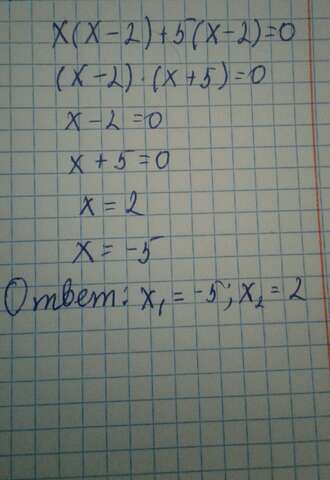 x(x-2)+5(x-2)=0
(x-2)·(x+5)=0
x-2=0
x+5=0
x=2
x=-5
Ответ: x₁=-5; x₂=2